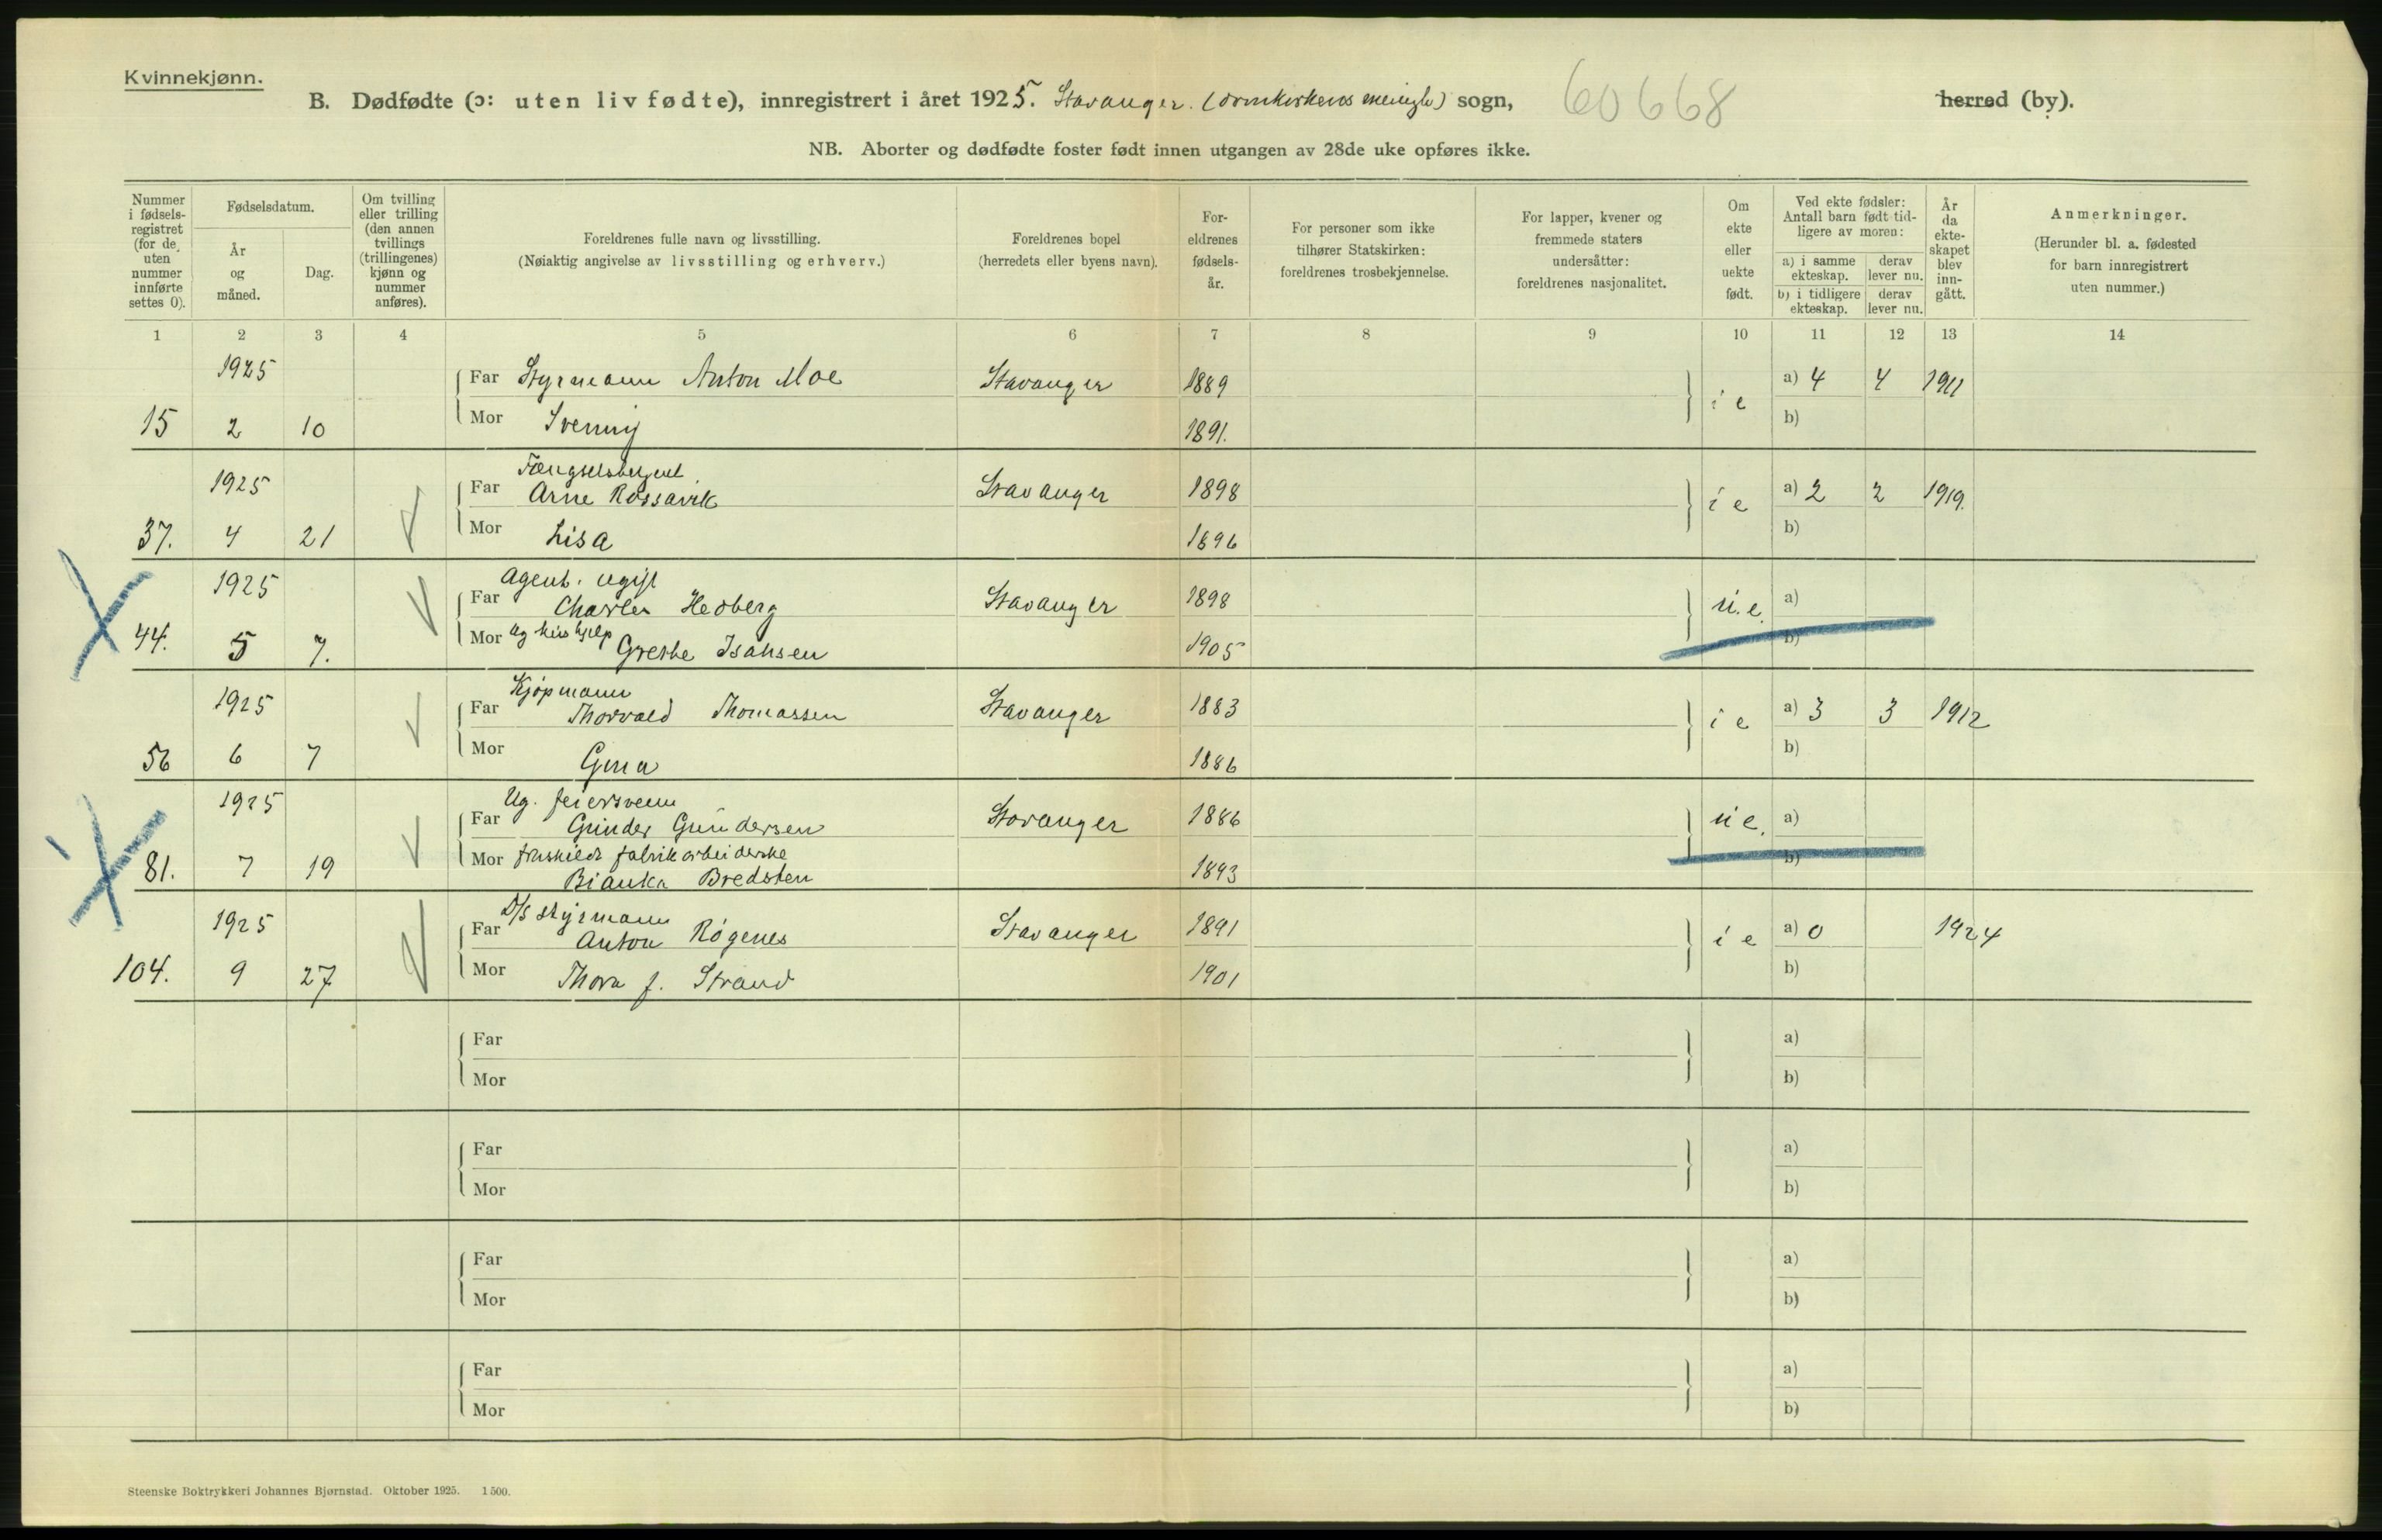 Kvinnekjønn.
B. Dødfødte (ɔ: uten liv fødte), innregistrert i året 1925. Stavanger. (domkirkens menigh) sogn, 60668 herred (by).
NB. Aborter og dødfødte foster født innen utgangen av 28de uke opføres ikke.
Nummer i fødsels-registret (for de uten nummer innførte settes 0).
Fødselsdatum.
År og måned.
Dag.
Om tvilling eller trilling (den annen tvillings (trillingenes) kjønn og nummer anføres).
Foreldrenes fulle navn og livsstilling.
(Nøiaktig angivelse av livsstilling og erhverv.)
Foreldrenes bopel
(herredets eller byens navn).
For-eldrenes fødsels-år.
For personer som ikke tilhører Statskirken: foreldrenes trosbekjennelse.
For lapper, kvener og fremmede staters undersåtter: foreldrenes nasjonalitet.
Om ekte eller uekte født.
Ved ekte fødsler: Antall barn født tid-ligere av moren:
a) i samme ekteskap.
derav lever nu.
b) i tidligere ekteskap.
derav lever nu.
År da ekte-skapet blev inn-gått.
Anmerkninger.
(Herunder bl. a. fødested for barn innregistrert uten nummer.)
1 2 3 4 5 6 7 8 9 10 11 12 13 14
1925 Far Styrmann Anton Moe Stavanger 1889 i e a) 4 4 1911
15 2 10 Mor 1891. b)
1925 Far Arne Rossavik Stavanger 1898 i e a) 2 2 1919.
37. 4 21 Mor Lisa 1896 b)
Agent. ugift
1925 Far Charles Hedberg Stavanger 1898 u.e. a)
44. 5 7. Mor Ug hushjelp Grethe Isaksen 1905 b)
Kjøpmann
1925 Far Thorvald Thomassen Stavanger 1883 i e a) 3 3 1912
56 6 7 Mor Gina 1886 b)
Ug. feiersvenn
1925 Far Gunder Gundersen Stavanger 1886 u e. a)
81. 7 19 Mor fraskildt fabrikarbeiderske 1893 b)
Bianka Bredsten
D/S styrmann
1925 Far Anton Røgenes Stavanger 1891 i e a) 0 1924
104. 9 27 Mor Thora f. Strand 1901 b)
Far a)
Mor b)
Far a)
Mor b)
Far a)
Mor b)
Far a)
Mor b)
Steenske Boktrykkeri Johannes Bjørnstad. Oktober 1925. 1500.